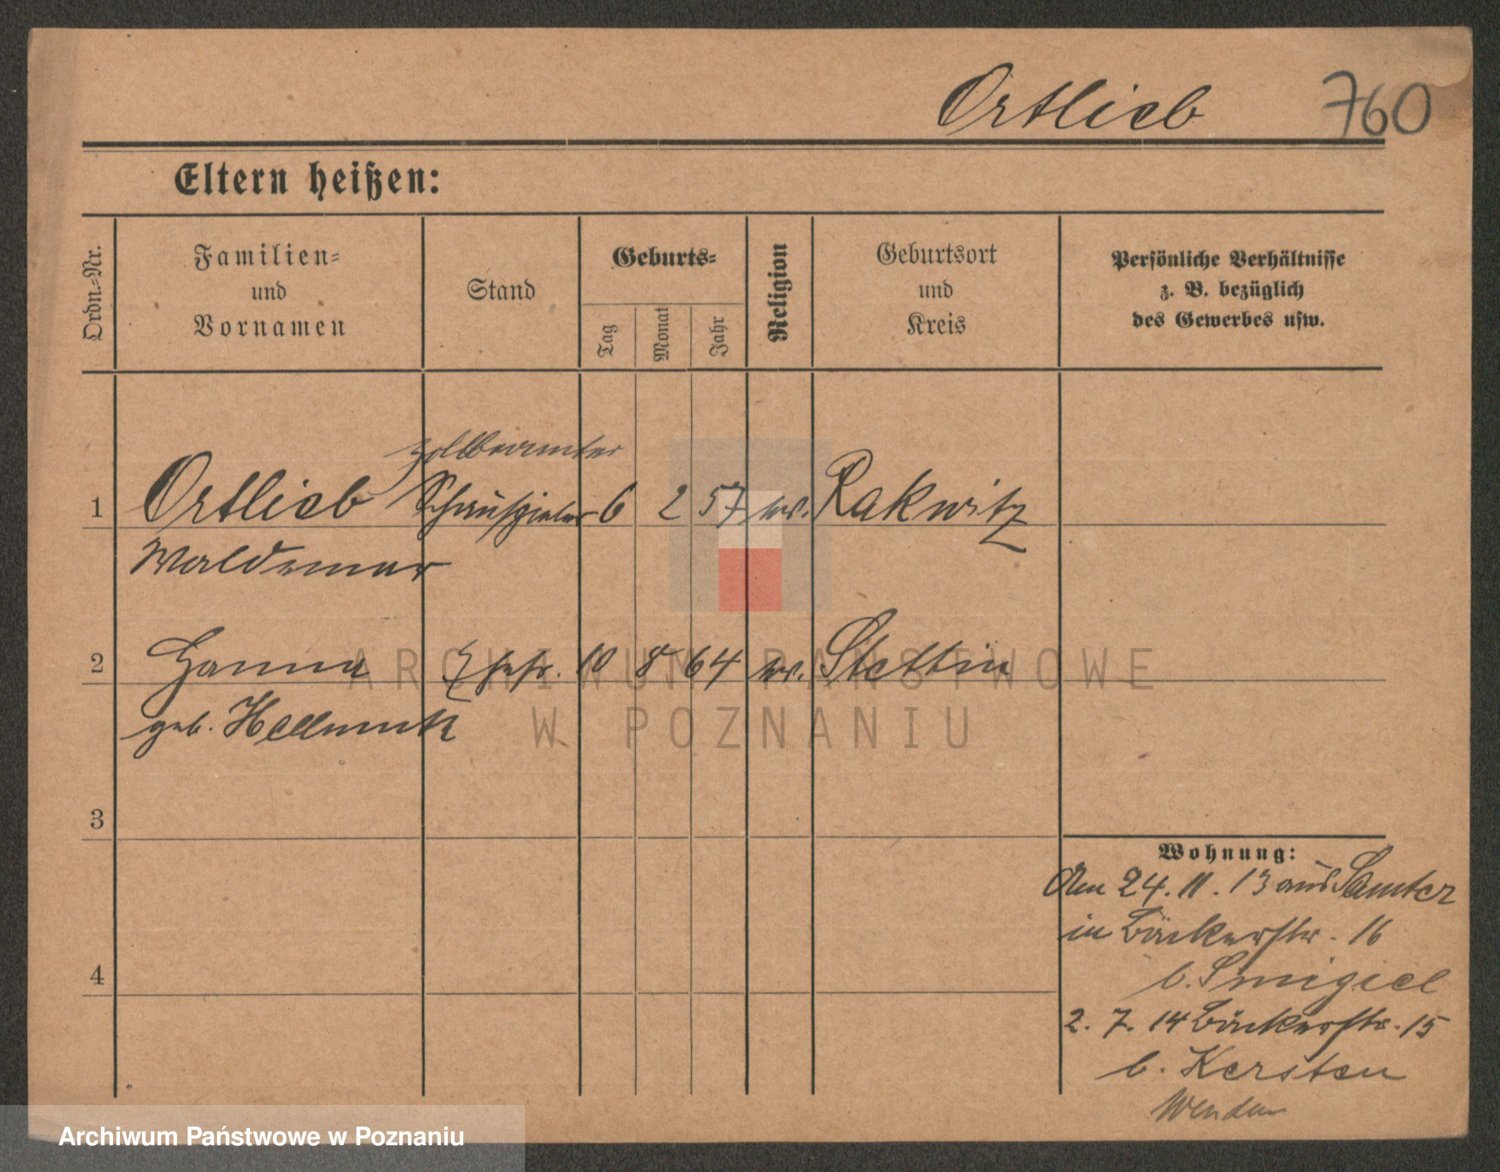 Ortlieb 760
Eltern heißen:
Ordn.-Nr.
Familien-
und
Vornamen
Stand
Geburts-
Tag
Monat
Jahr
Religion
Geburtsort
und
Kreis
Persönliche Verhältnisse
z. B. bezüglich
des Gewerbes usw.
Zollbeamter
1 Ortlieb Schauspieler 6 2 57 ev. Rakwitz
Waldemar
2 Hanna Ehefr. 10 8 64 ev. Stettin
geb. Hellmuth
3
4
Wohnung:
Am 24. 11. 13 aus Samter
in Bäckerstr. 16
b. Smigiel
2. 7. 14 Bäckerstr. 15
b. Kersten
Wenden
ARCHIWUM PAŃSTWOWE
W POZNANIU
Archiwum Państwowe w Poznaniu